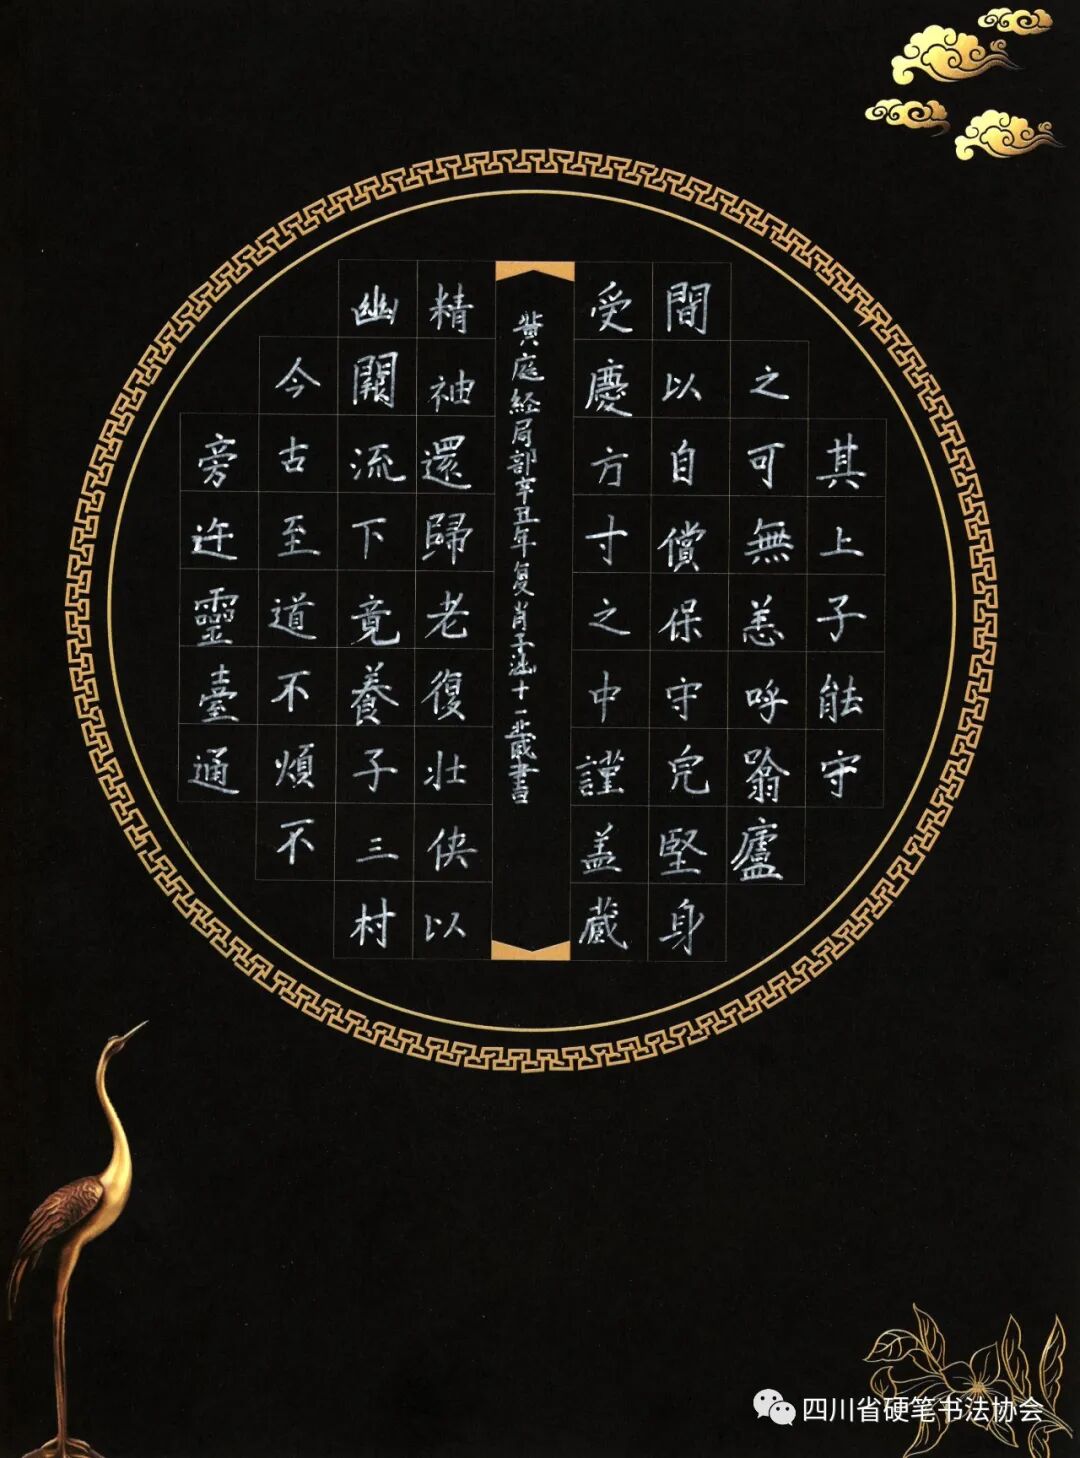 其上子能守
之可無恙呼噏廬
間以自償保守完堅身
受慶方寸之中謹盖蔵
黄庭经局部辛丑年复肖子涵十一歲書
精神還歸老復壮侠以
幽闕流下竟養子玉树
今古至道不煩不
旁迕靈臺通
四川省硬笔书法协会